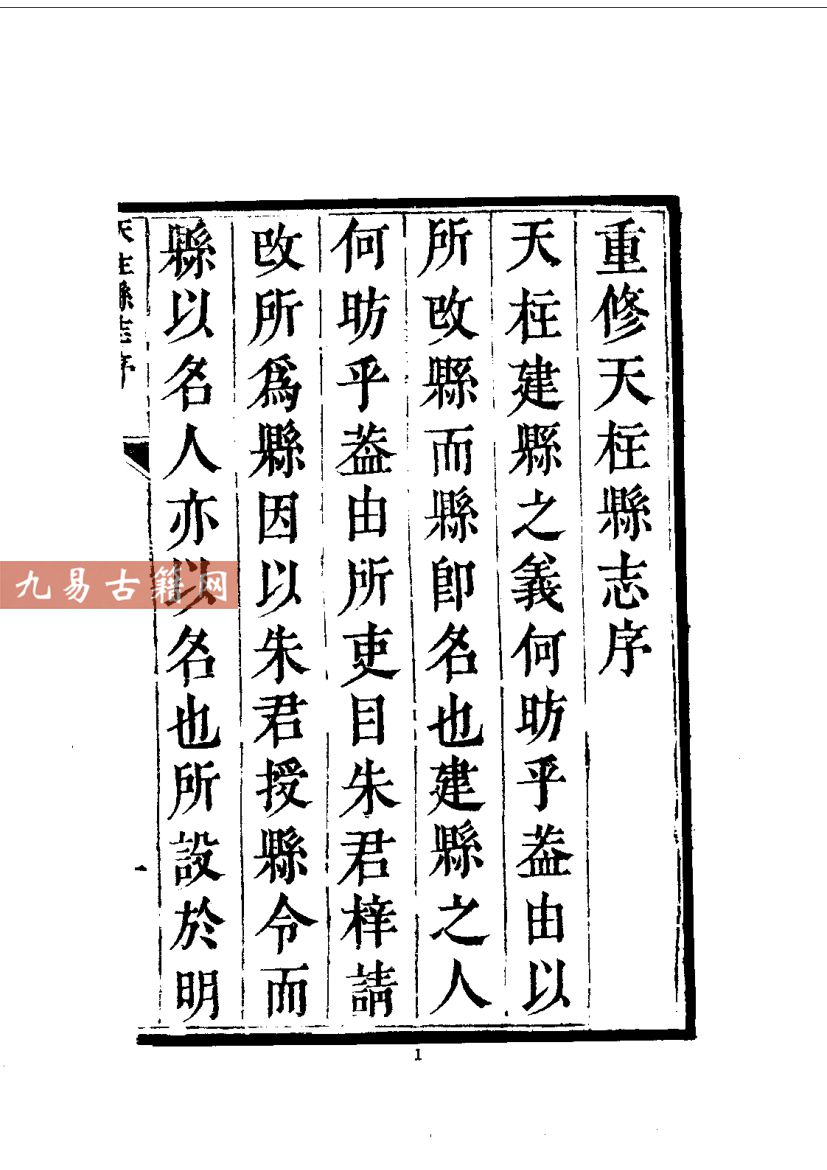 重修天柱縣志序
天柱建縣之義何昉乎葢由以
所改縣而縣卽名也建縣之人
何昉乎葢由所吏目朱君梓請
改所爲縣因以朱君授縣令而
縣以名人亦以名也所設於明
天柱縣志序
九易古籍网
1